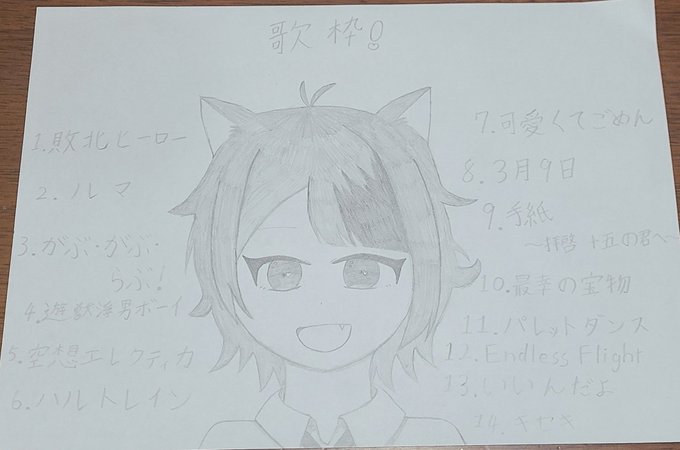 歌枠!
1.敗北ヒーロー
2.ノルマ
3.がぶ・がぶ・
らぶ!
5.空想エレクティカ
6.ハルトレイン
7.可愛くてごめん
8.3月9日
9.手紙
～拝啓 十五の君へ～
10.最幸の宝物
11.パレットダンス
12.Endless Flight
13.いいんだよ
14.キセキ